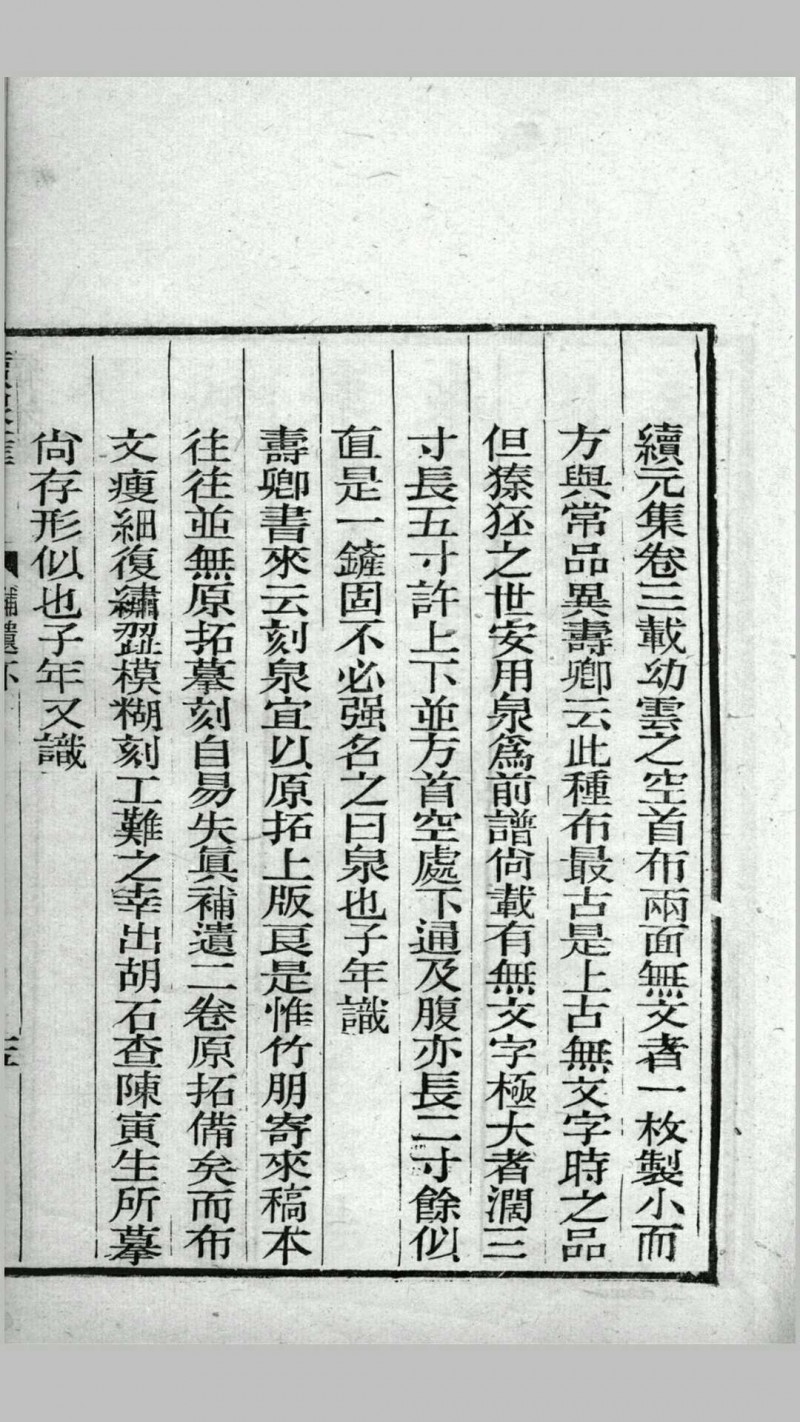 續元集卷三載幼雲之空首布兩面無文者一枚製小而
方與常品異壽卿云此種布最古是上古無文字時之品
但獉狉之世安用泉爲前譜尙載有無文字極大者濶三
寸長五寸許上下並方首空處下通及腹亦長二寸餘似
直是一鏟固不必强名之曰泉也子年識
壽卿書來云刻泉宜以原拓上版良是惟竹朋寄來稿本
往往並無原拓摹刻自易失眞補遺二卷原拓備矣而布
文瘦細復繡澀模糊刻工難之幸出胡石查陳寅生所摹
尙存形似也子年又識
補遺下